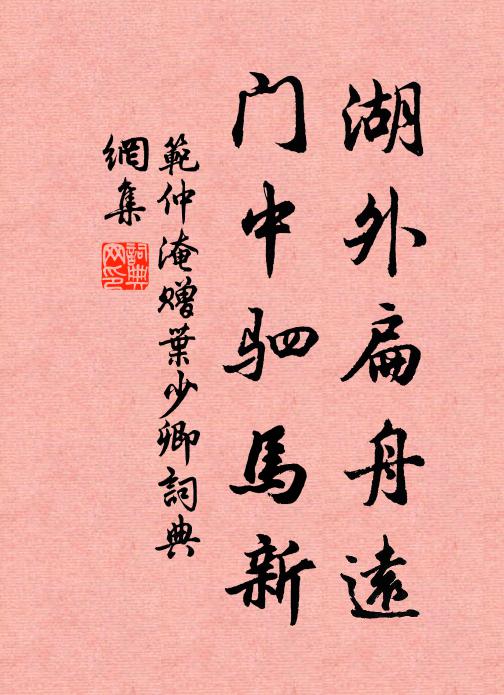 湖外扁舟遠
门中驷馬新
範仲淹赠葉少卿詞典
網集
詞典
网印